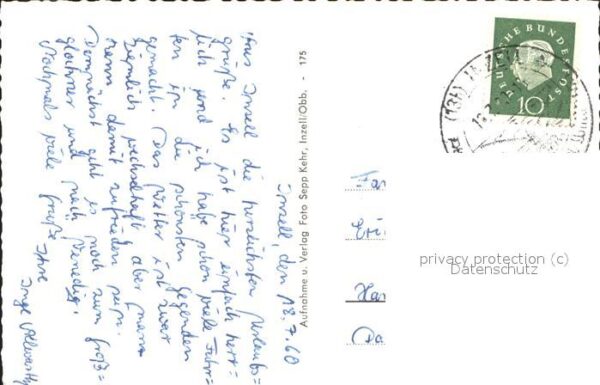 Inzell, den 18.7.60
Aus Inzell die herzlichsten Urlaubs=
grüße. Es ist hier einfach herr=
lich und ich habe schon viele Fahr=
ten in die schönsten Gegenden
gemacht. Das Wetter ist zwar
ziemlich wechselhaft, aber man
kann damit zufrieden sein.
Demnächst geht es noch zum Groß=
glockner und nach Venedig.
Nochmals viele Grüße Ihre
Inge
Aufnahme u. Verlag Foto Sepp Kehr, Inzell/Obb. - 175
DEUTSCHE BUNDESPOST
10
(13b) INZELL
Eri
Ha
Da
privacy protection (c)
Datenschutz